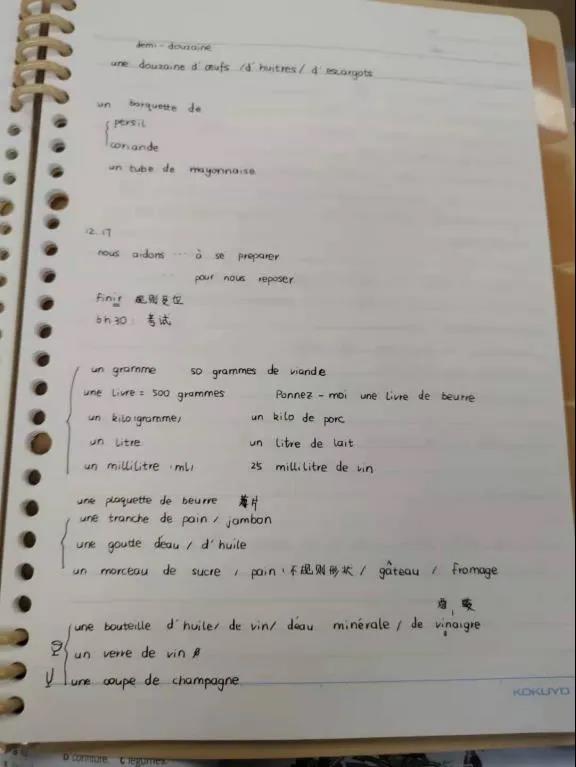 demi-douzaine
une douzaine d'œufs /d'huitres/ d'escargots
un barquette de
persil
coriande
un tube de mayonnaise
12.17
nous aidons ... à se preparer
... pour nous reposer
finir 规则变位
bh30: 考试
un gramme 50 grammes de viande
une livre = 500 grammes Donnez-moi une livre de beurre
un kilo(gramme) un kilo de porc
un litre un litre de lait
un millilitre (ml) 25 millilitre de vin
une plaquette de beurre 薄片
une tranche de pain / jambon
une goutte d'eau / d'huile
un morceau de sucre / pain (不规则形状 / gâteau / fromage
une bouteille d'huile/ de vin/ d'eau minérale / de vinaigre
un verre de vin
une coupe de champagne
KOKUYO
D confiture. C légumes.